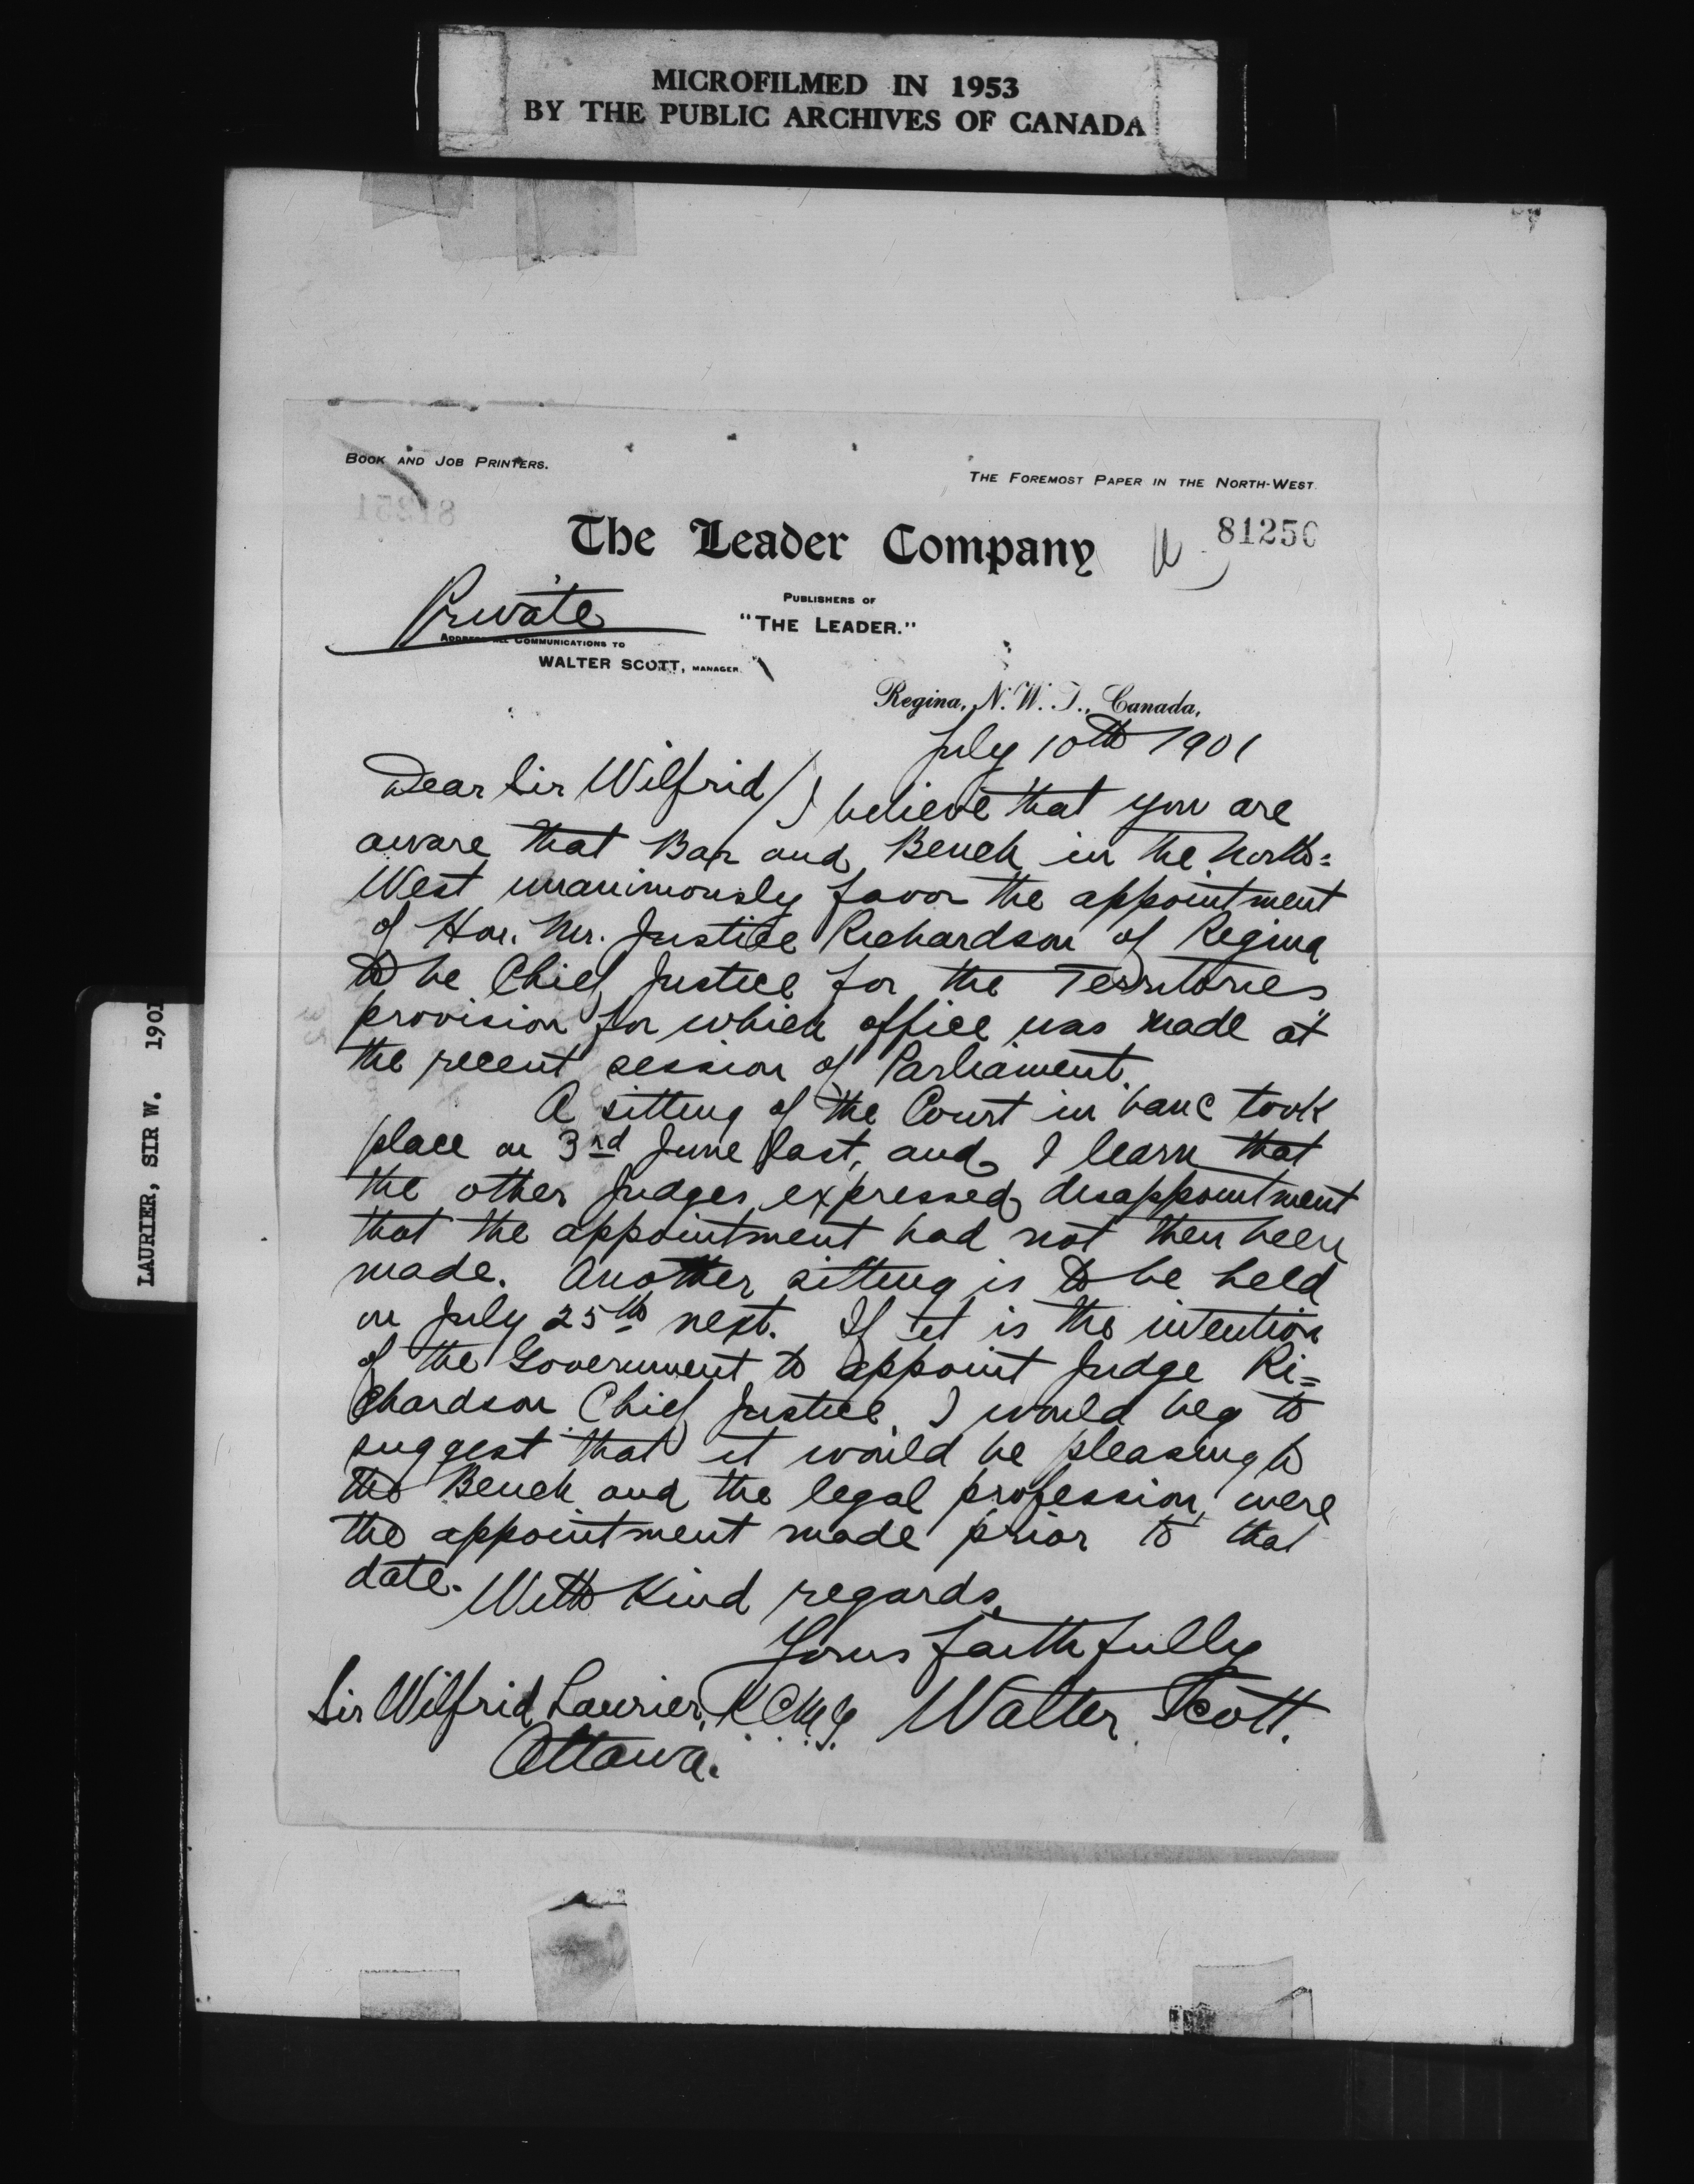 MICROFILMED IN 1953
BY THE PUBLIC ARCHIVES OF CANADA
LAURIER, SIR W. 1901
BOOK AND JOB PRINTERS.
THE FOREMOST PAPER IN THE NORTH-WEST.
81251
The Leader Company
81250
Private
PUBLISHERS OF
"THE LEADER."
ADDRESS ALL COMMUNICATIONS TO
WALTER SCOTT, MANAGER
Regina, N. W. T., Canada,
July 10th 1901
Dear Sir Wilfrid / I believe that you are
aware that Bar and Bench in the North=
West unanimously favor the appointment
of Hon. Mr. Justice Richardson of Regina
to be Chief Justice for the Territories
provision for which office was made at
the recent session of Parliament.
A sitting of the Court in banc took
place on 3rd June last, and I learn that
the other Judges expressed disappointment
that the appointment had not then been
made. Another sitting is to be held
on July 25th next. If it is the intention
of the Government to appoint Judge Ri=
chardson Chief Justice, I would beg to
suggest that it would be pleasing to
the Bench and the legal profession, were
the appointment made prior to that
date. With kind regards,
Yours faithfully
Sir Wilfrid Laurier, K.C.M.G. Walter Scott.
Ottawa.